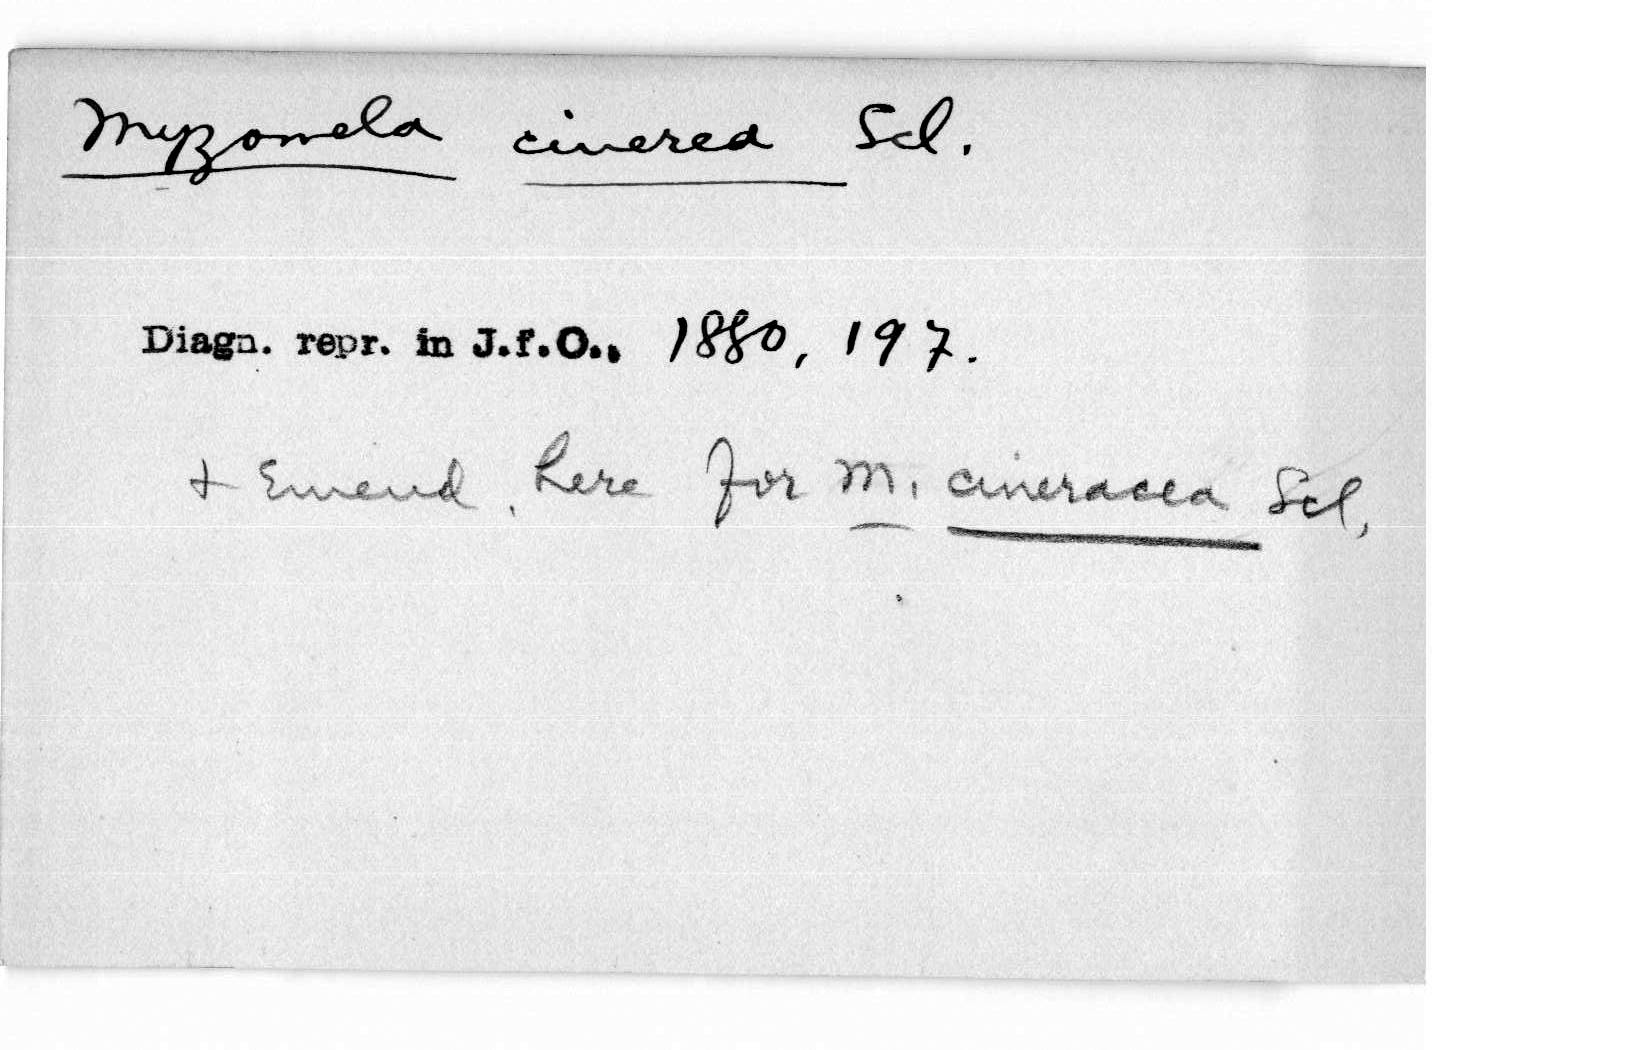 Myzomela cinerea Scl.
Diagn. repr. in J.f.O., 1880, 197.
+ Emend. here for M. cineracea Scl.